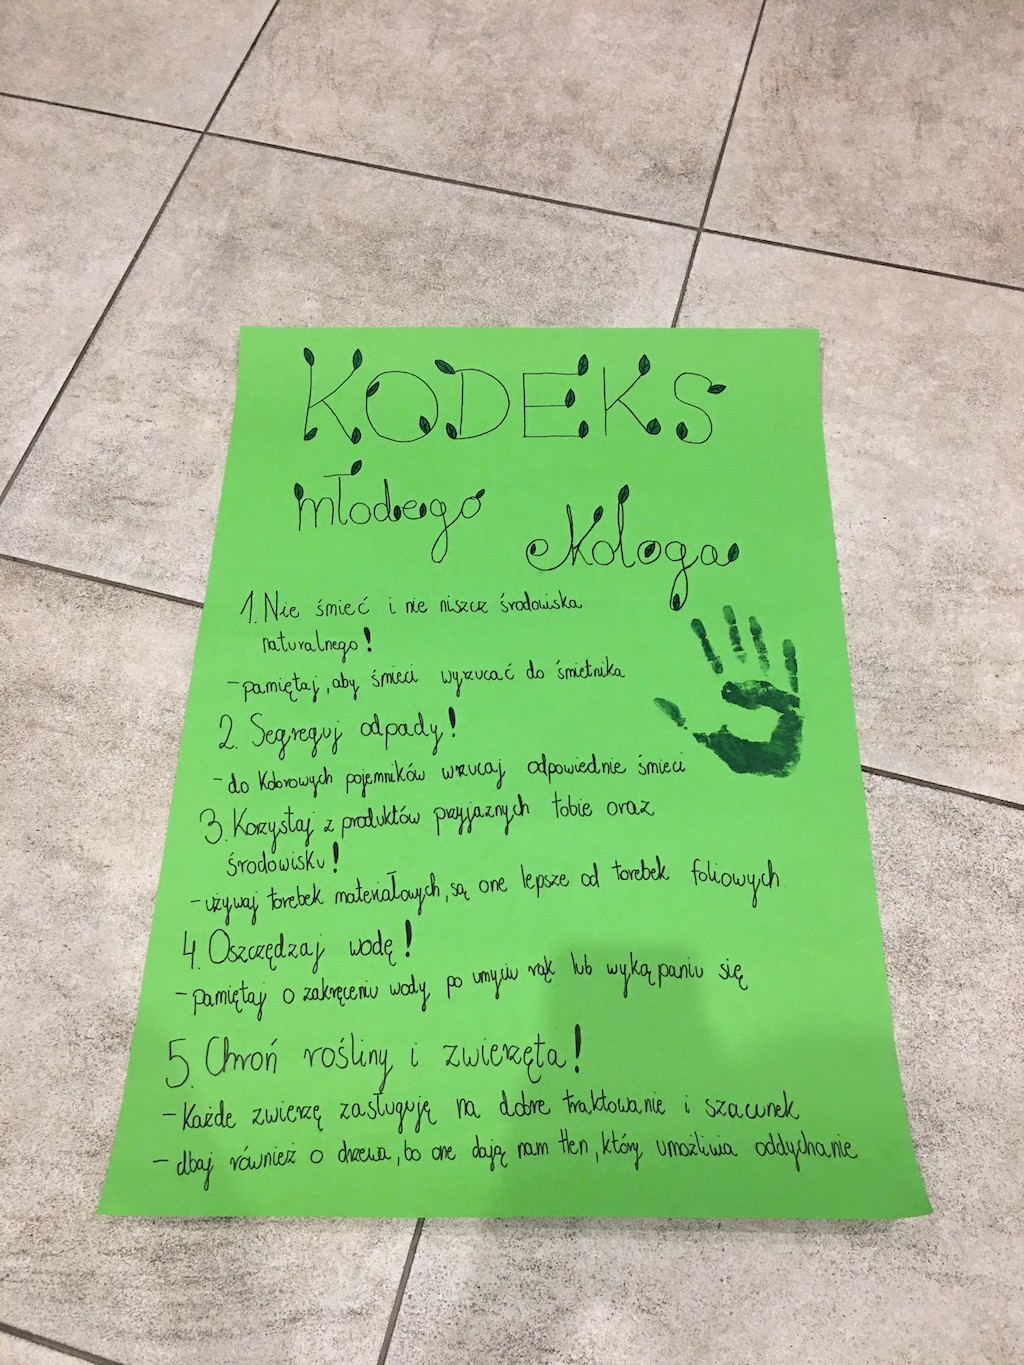 KODEKS
młodego
ekologa
1. Nie śmieć i nie niszcz środowiska
naturalnego!
- pamiętaj, aby śmieci wyrzucać do śmietnika
2. Segreguj odpady!
- do kolorowych pojemników wrzucaj odpowiednie śmieci
3. Korzystaj z produktów przyjaznych tobie oraz
środowisku!
- używaj torebek materiałowych, są one lepsze od torebek foliowych
4. Oszczędzaj wodę!
- pamiętaj o zakręceniu wody po umyciu rąk lub wykąpaniu się
5. Chroń rośliny i zwierzęta!
- Każde zwierzę zasługuję na dobre traktowanie i szacunek
- dbaj również o drzewa, bo one dają nam tlen, który umożliwia oddychanie